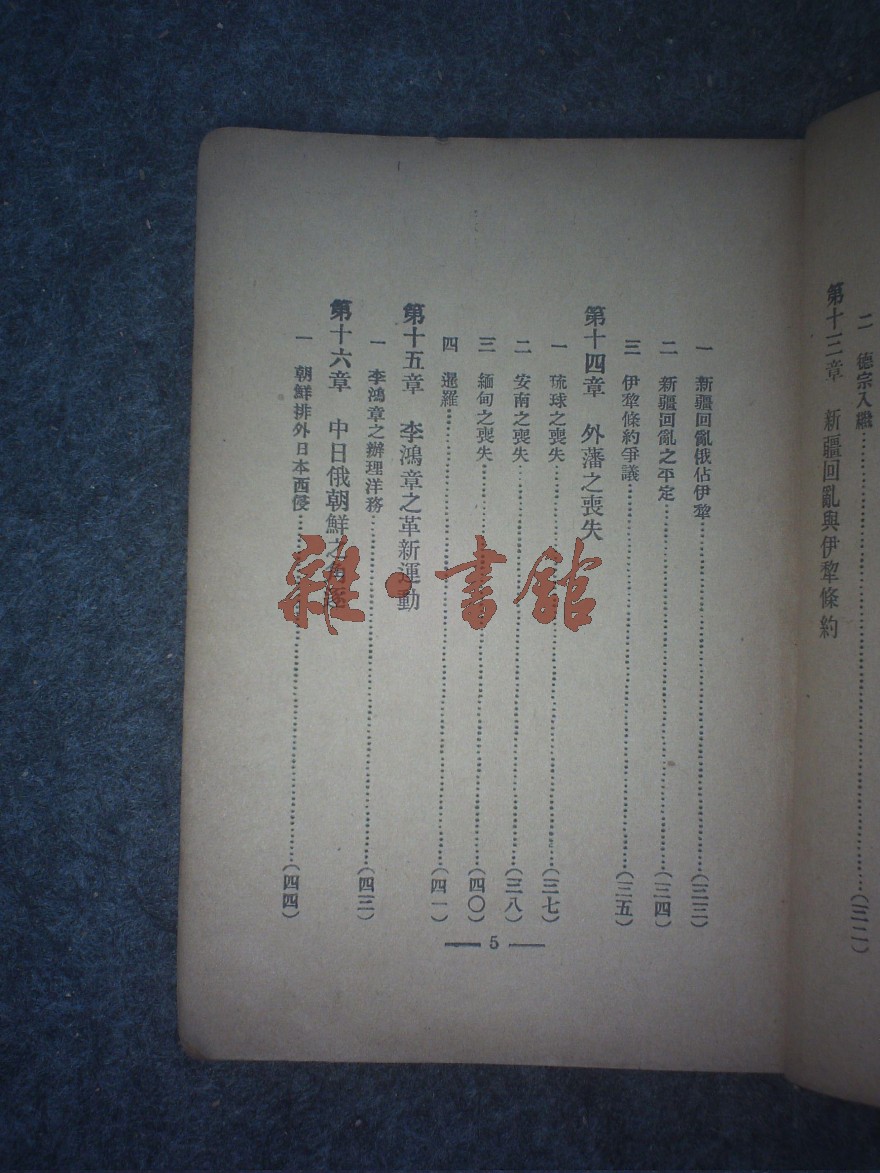 二 德宗入繼……(三二)
第十三章 新疆回亂與伊犂條約
一 新疆回亂俄佔伊犂……(三三)
二 新疆回亂之平定……(三四)
三 伊犂條約爭議……(三五)
第十四章 外藩之喪失
一 琉球之喪失……(三七)
二 安南之喪失……(三八)
三 緬甸之喪失……(四〇)
四 暹羅……(四一)
第十五章 李鴻章之革新運動
一 李鴻章之辦理洋務……(四三)
第十六章 中日俄朝鮮之角逐
一 朝鮮排外日本西侵……(四四)
5
雜·書館